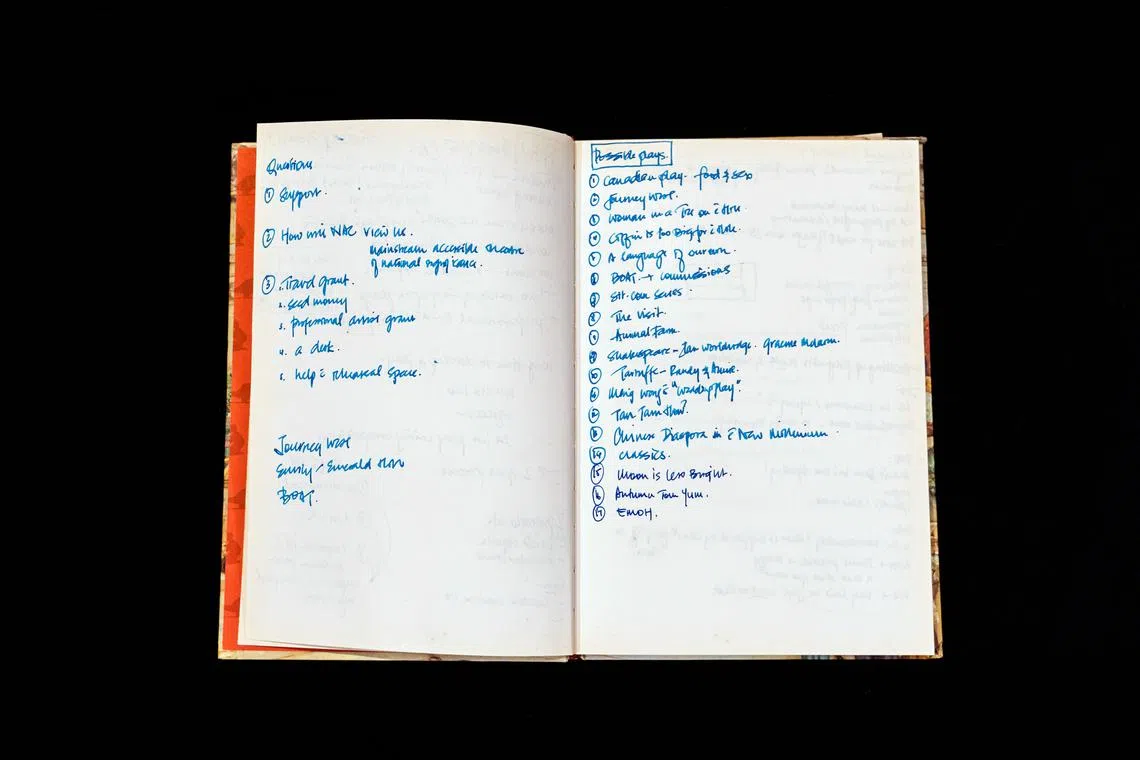 Questions
① Support.
② How will NAC view us.
mainstream accessible theatre
of national significance.
③ 1. Travel grant.
2. seed money
3. professional artist grant
4. a desk.
5. help c̄ rehearsal space.
Journey West
Emily / Emerald Hill
BOAT.
Possible plays.
① Canadian play. food & sex
② Journey West.
③ Woman in a Tree on c̄ Hill.
④ Coffin is too Big for c̄ Hole.
⑤ A Language of our own.
⑥ BOAT. → commissions
⑦ Sit.com series.
⑧ The Visit.
⑨ Animal Farm.
Shakespeare -
⑩ Tartuffe - Randy & Annie.
wordsplay".
Tan Tarn How?
Chinese Diaspora in c̄ New Millennium.
⑭ classics.
⑮ Moon is Less Bright.
Autumn Tom Yum.
⑰ EMOH.